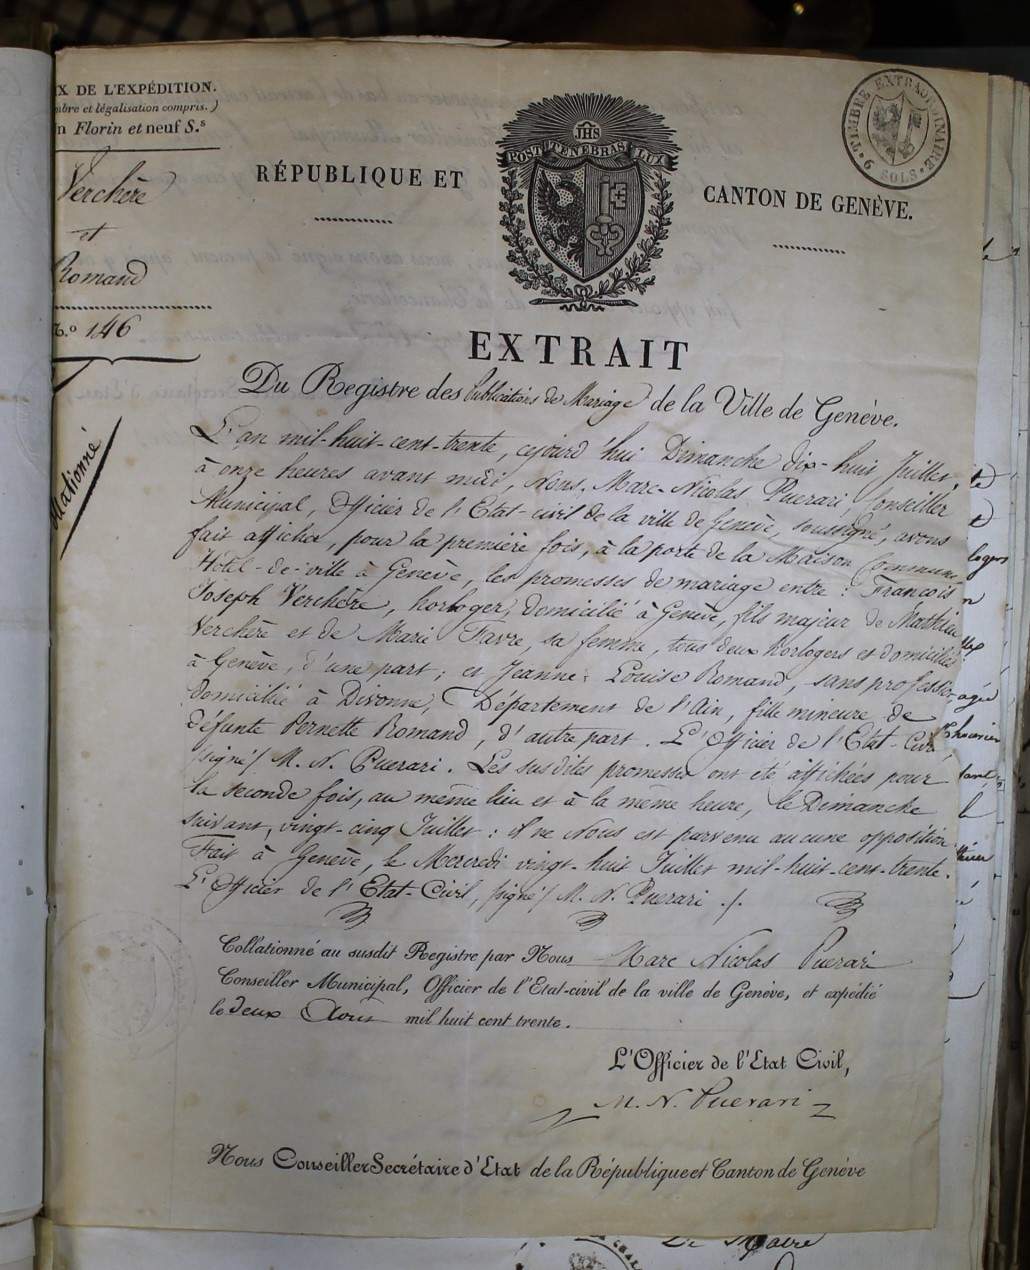 X DE L'EXPÉDITION.
mbre et légalisation compris.)
n Florin et neuf S.s
Verchère
et
Romand
N.o 146
Collationné
RÉPUBLIQUE ET
JHS
POST TENEBRAS LUX
CANTON DE GENÈVE.
TIMBRE EXTRAORDINAIRE
9 SOLS
EXTRAIT
Du Registre des Publications de Mariage de la Ville de Genève.
L'an mil-huit-cent-trente, cejourd'hui Dimanche dix-huit Juillet,
à onze heures avant midi, Nous, Marc-Nicolas Puerari, Conseiller
Municipal, Officier de l'Etat-civil de la ville de Genève, soussigné, avons
fait afficher, pour la première fois, à la porte de la Maison Commune,
Hôtel-de-ville à Genève, les promesses de mariage entre : François
Joseph Verchère, horloger, domicilié à Genève, fils majeur de Mathieu
Verchère et de Marie Favre, sa femme, tous deux horlogers et domiciliés
à Genève, d'une part ; et Jeanne Louise Romand, sans profession,
domiciliée à Divonne, Département de l'Ain, fille mineure de
défunte Pernette Romand, d'autre part. L'Officier de l'Etat-Civil
/signé/ M. N. Puerari. Les susdites promesses ont été affichées pour
la seconde fois, au même lieu et à la même heure, le Dimanche
suivant, vingt-cinq Juillet : il ne Nous est parvenu aucune opposition.
Fait à Genève, le Mercredi vingt-huit Juillet mil-huit-cent-trente.
L'Officier de l'Etat-Civil, /signé/ M. N. Puerari ./.
Collationné au susdit Registre par Nous Marc Nicolas Puerari
Conseiller Municipal, Officier de l'Etat-civil de la ville de Genève, et expédié
le deux Aout mil huit cent trente.
L'Officier de l'Etat Civil,
M. N. Puerari
Nous Conseiller Secrétaire d'Etat de la République et Canton de Genève
Le Maire